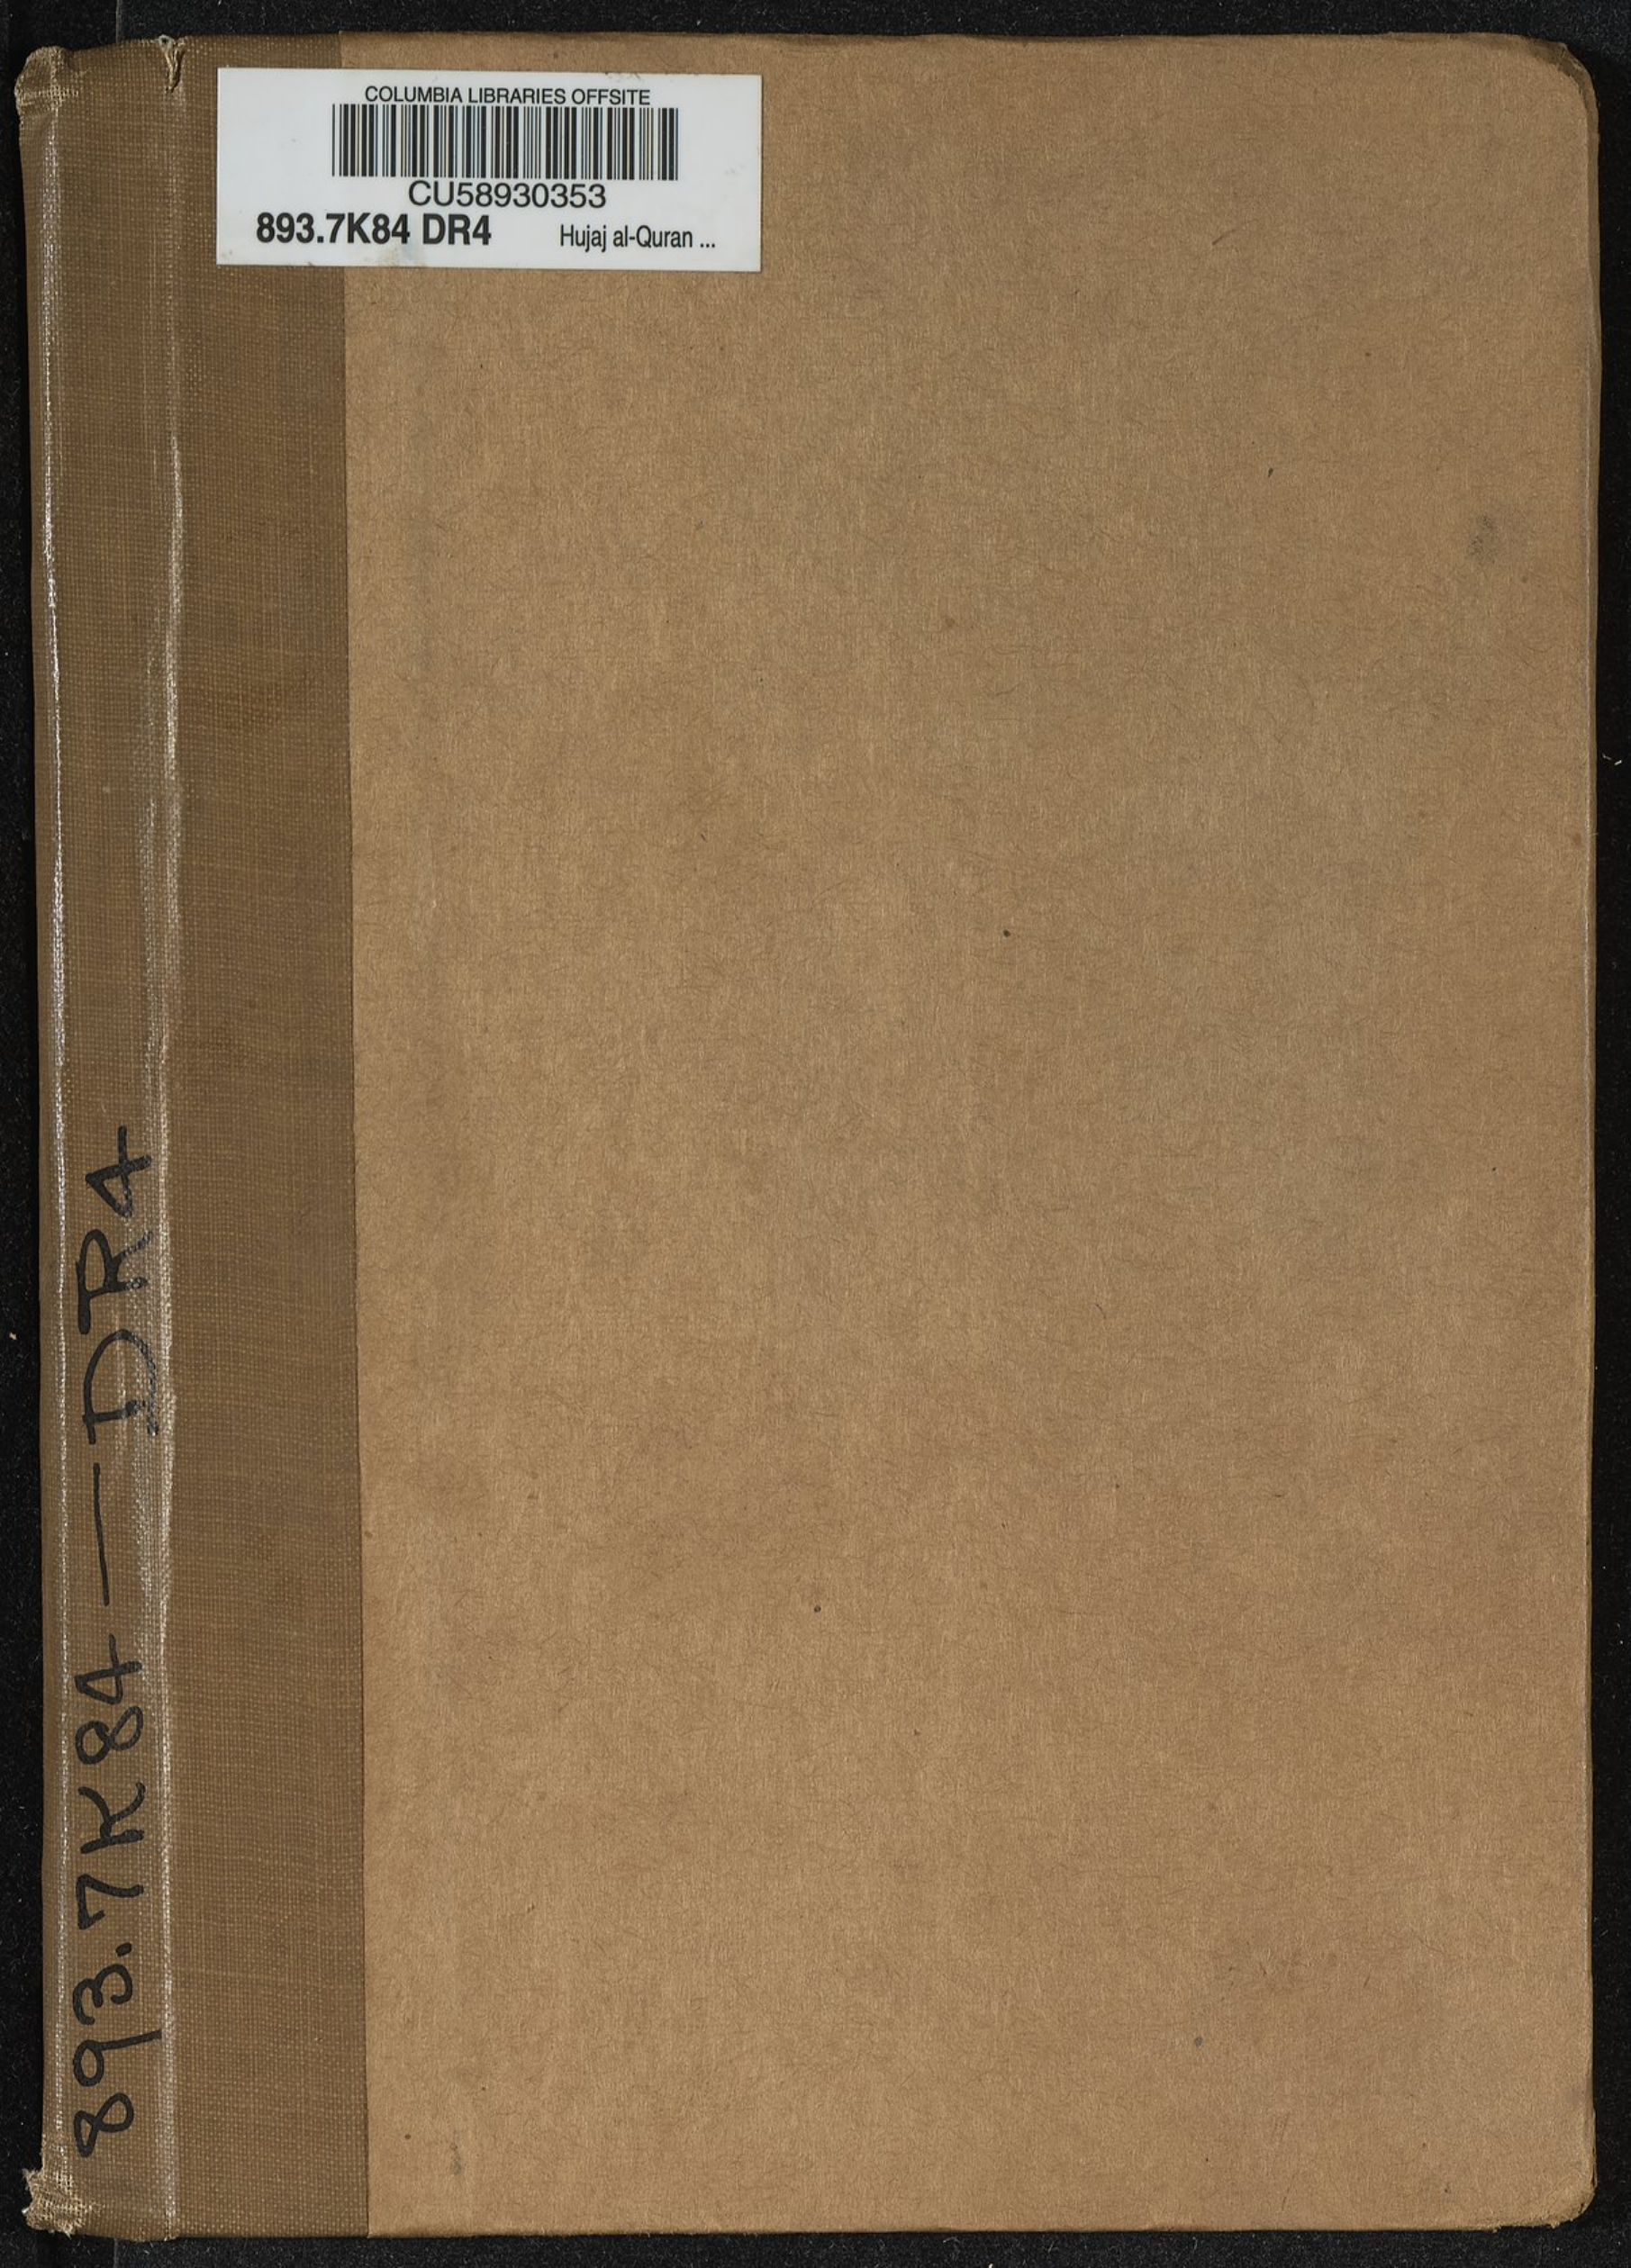 COLUMBIA LIBRARIES OFFSITE
CU58930353
893.7K84 DR4 Hujaj al-Quran ...
893.7K84 — DR4